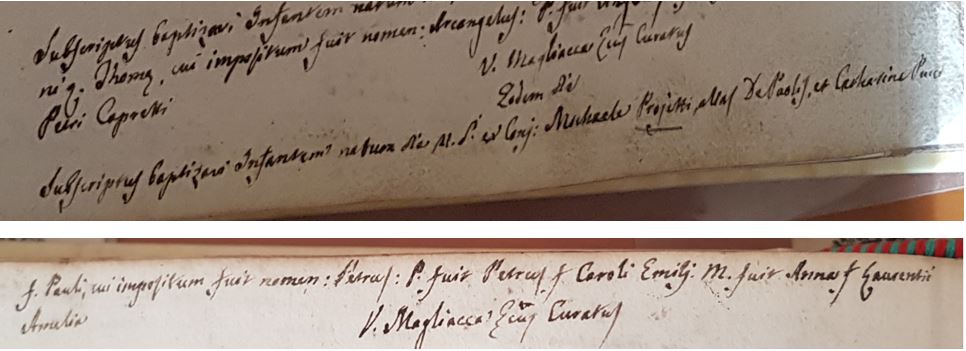 Subscriptus baptizavi Infantem natum
ni q. Thomę, cui impositum fuit nomen: Arcangelus: P. fuit
Petri Capretti
V. Magliacca Ecus Curatus
Eodem die
Subscriptus baptizavi Infantem natum die M. P. ex Conj: Michaele Projetti, alias De Paolis, et Catharina
f. Pauli, cui impositum fuit nomen: Petrus: P. fuit Petrus f Caroli Emilj. M. fuit Anna f Laurentii
Amelia
V. Magliacca Ecus Curatus